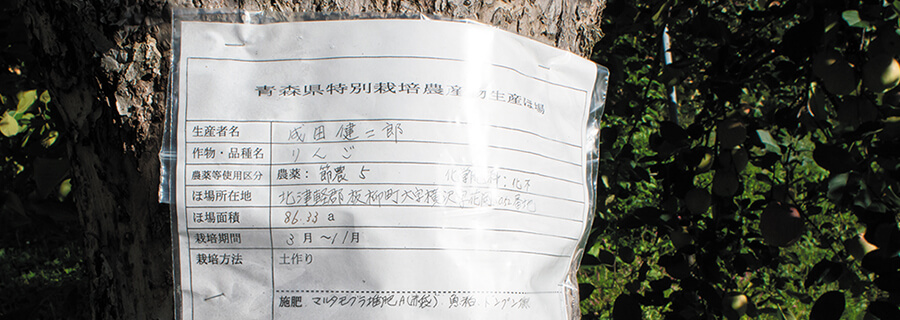 青森県特別栽培農産物生産ほ場
生産者名 成田健二郎
作物・品種名 りんご
農薬等使用区分 農薬：節農5
ほ場所在地 北津軽郡板柳町大字横沢
ほ場面積 86.33 a
栽培期間 3月～11月
栽培方法 土作り
施肥 マルタモグラ堆肥A(赤袋) 魚粕